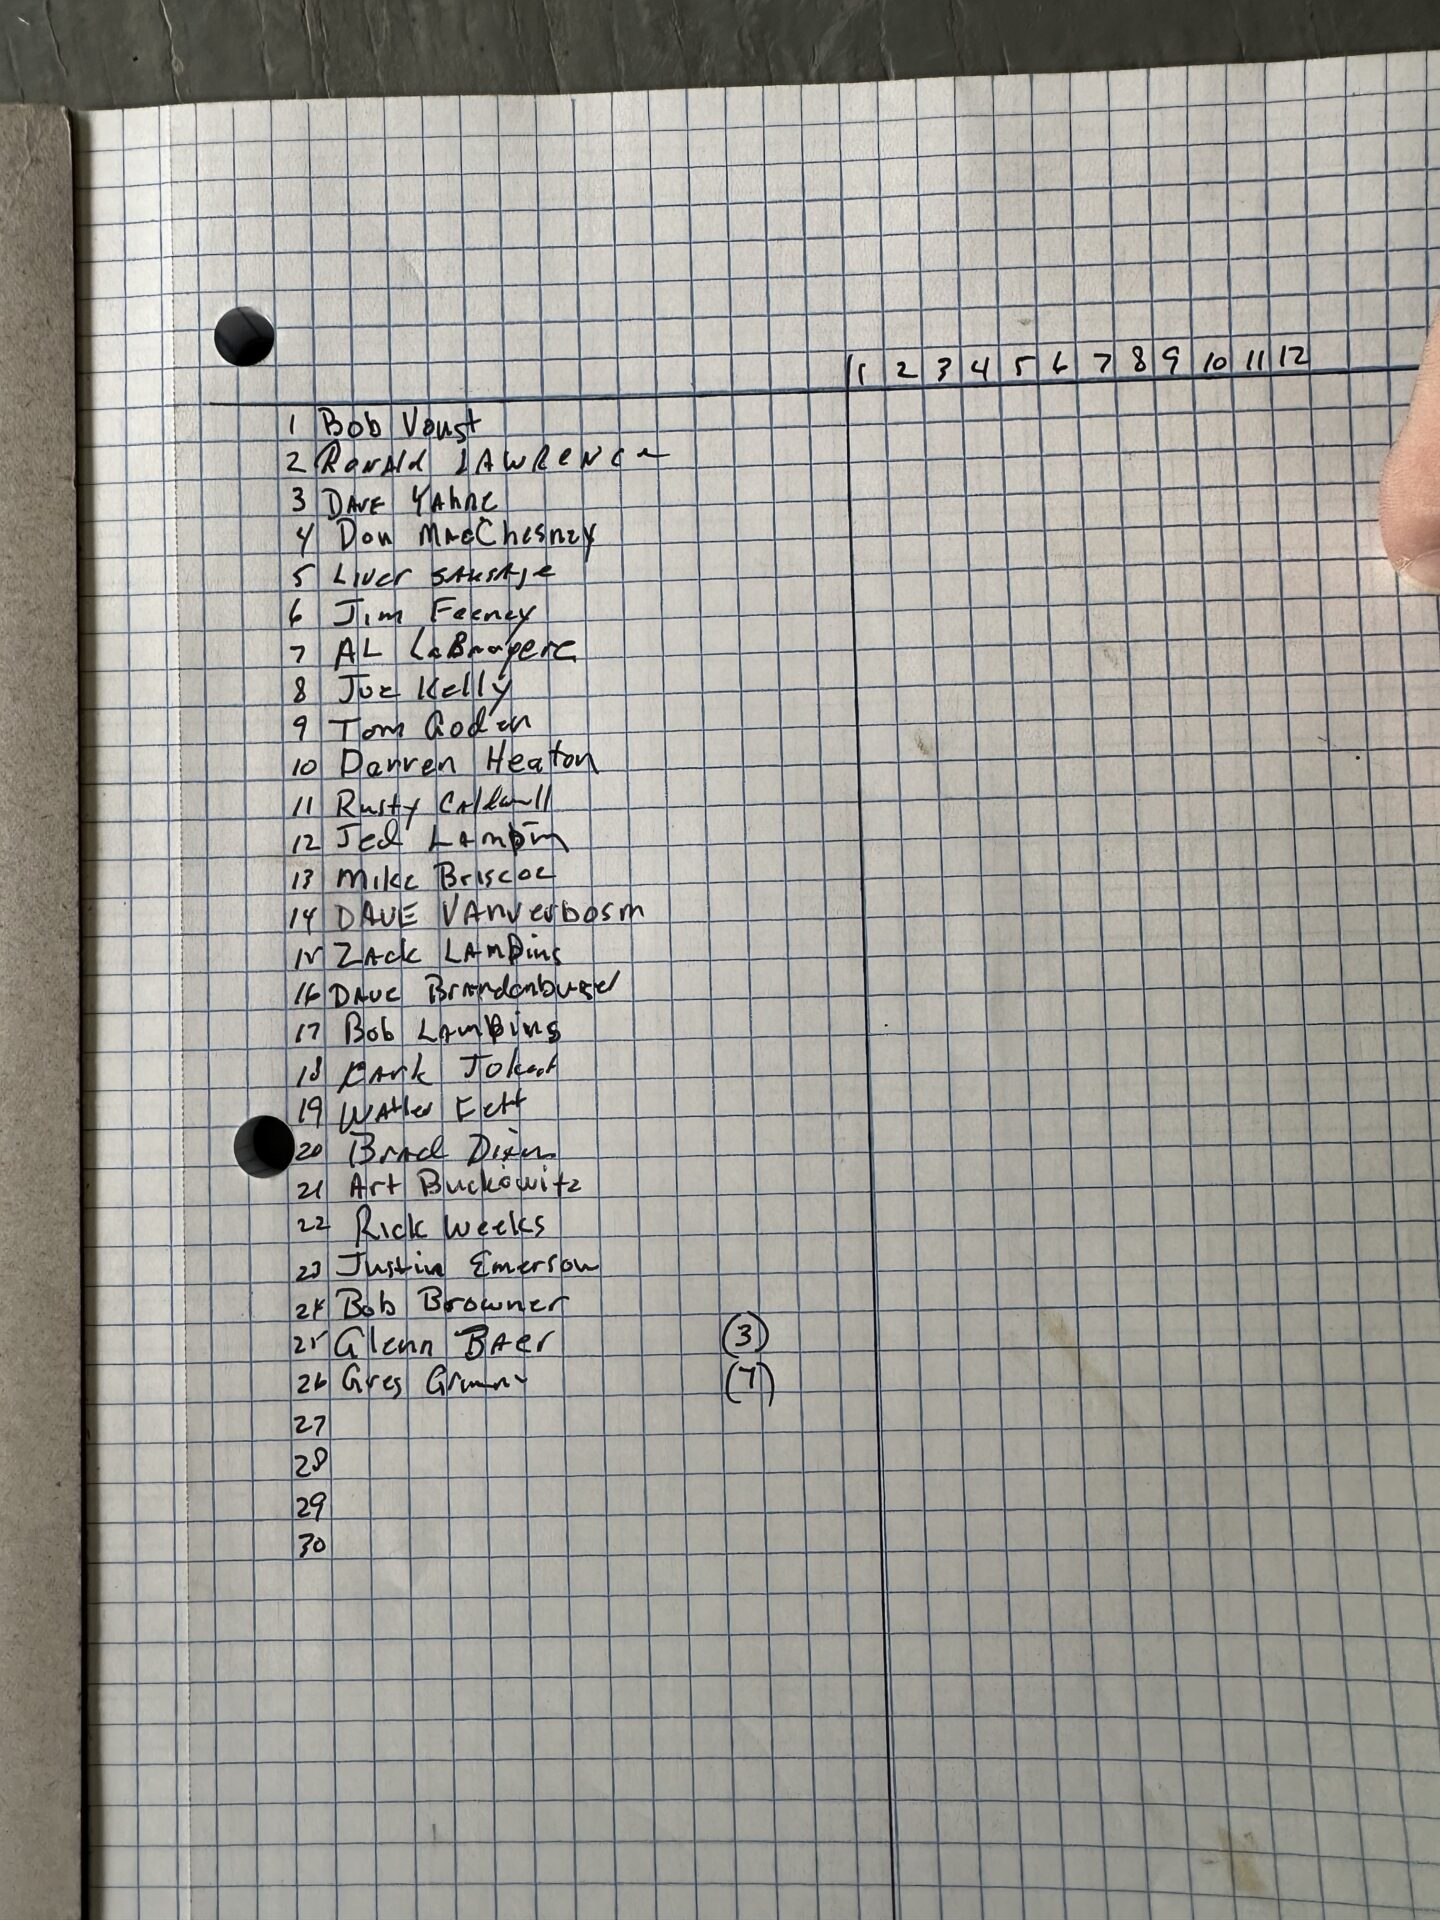 1 2 3 4 5 6 7 8 9 10 11 12
1 Bob Voust
2 Ronald LAWRENCE
3 DAVE YAhne
4 Don MacChesney
5 Liver sausage
6 Jim Feeney
7 AL LaBruyere
8 Joe Kelly
9 Tom Goden
10 Darren Heaton
11 Rusty Caldwell
12 Jed LAmpin
13 Mike Briscoe
14 DAVE VAnverbosm
15 ZAck LAmping
16 DAVE Brandenburger
17 Bob LAmping
18
19 Walter Fett
20 Brad Dixon
21 Art Buckowitz
22 Rick Weeks
23 Justin Emerson
24 Bob Browner
25 Glenn BAer (3)
26 Greg (7)
27
28
29
30